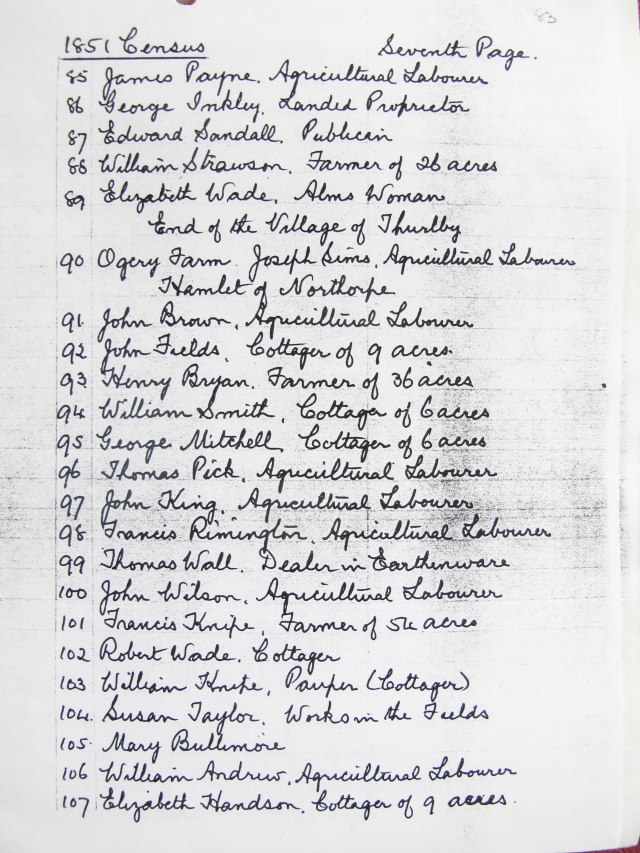 83
1851 Census Seventh Page.
85 James Payne. Agricultural Labourer
86 George Inkley. Landed Proprietor
87 Edward Sandall. Publican
88 William Strawson. Farmer of 26 acres
89 Elizabeth Wade. Alms Woman
End of the Village of Thurlby
90 Ogery Farm. Joseph Sims. Agricultural Labourer
Hamlet of Northorpe
91. John Brown. Agricultural Labourer
92 John Fields. Cottager of 9 acres.
93 Henry Bryan. Farmer of 36 acres
94 William Smith. Cottager of 6 acres
95 George Mitchell. Cottager of 6 acres
96 Thomas Pick. Agricultural Labourer
97 John King. Agricultural Labourer
98 Francis Rimington. Agricultural Labourer
99 Thomas Wall. Dealer in Earthenware
100 John Wilson. Agricultural Labourer
101 Francis Knipe. Farmer of 54 acres
102 Robert Wade. Cottager
103 William Knipe. Pauper (Cottager)
104. Susan Taylor. Works in the Fields
105. Mary Bullimore
106 William Andrew. Agricultural Labourer
107 Elizabeth Handson. Cottager of 9 acres.